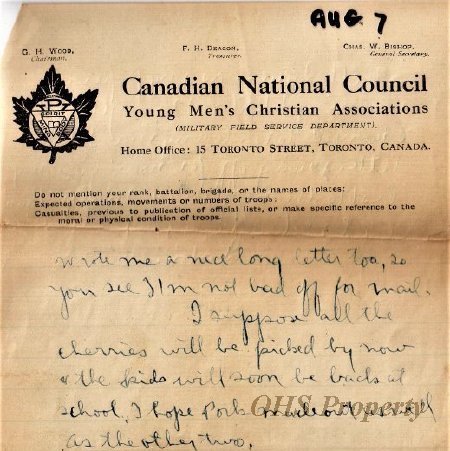 AUG 7
G. H. WOOD,
Chairman.
F. H. DEACON,
Treasurer.
CHAS. W. BISHOP,
General Secretary.
Canadian National Council
Young Men's Christian Associations
(MILITARY FIELD SERVICE DEPARTMENT).
Home Office: 15 TORONTO STREET, TORONTO, CANADA.
Do not mention your rank, battalion, brigade, or the names of places:
Expected operations, movements or numbers of troops:
Casualties, previous to publication of official lists, or make specific reference to the
moral or physical condition of troops.
wrote me a nice long letter too, so
you see I'm not bad off for mail.
I suppose all the
cherries will be picked by now
& the kids will soon be back at
school, I hope made out as well
as the other two.
OHS Property